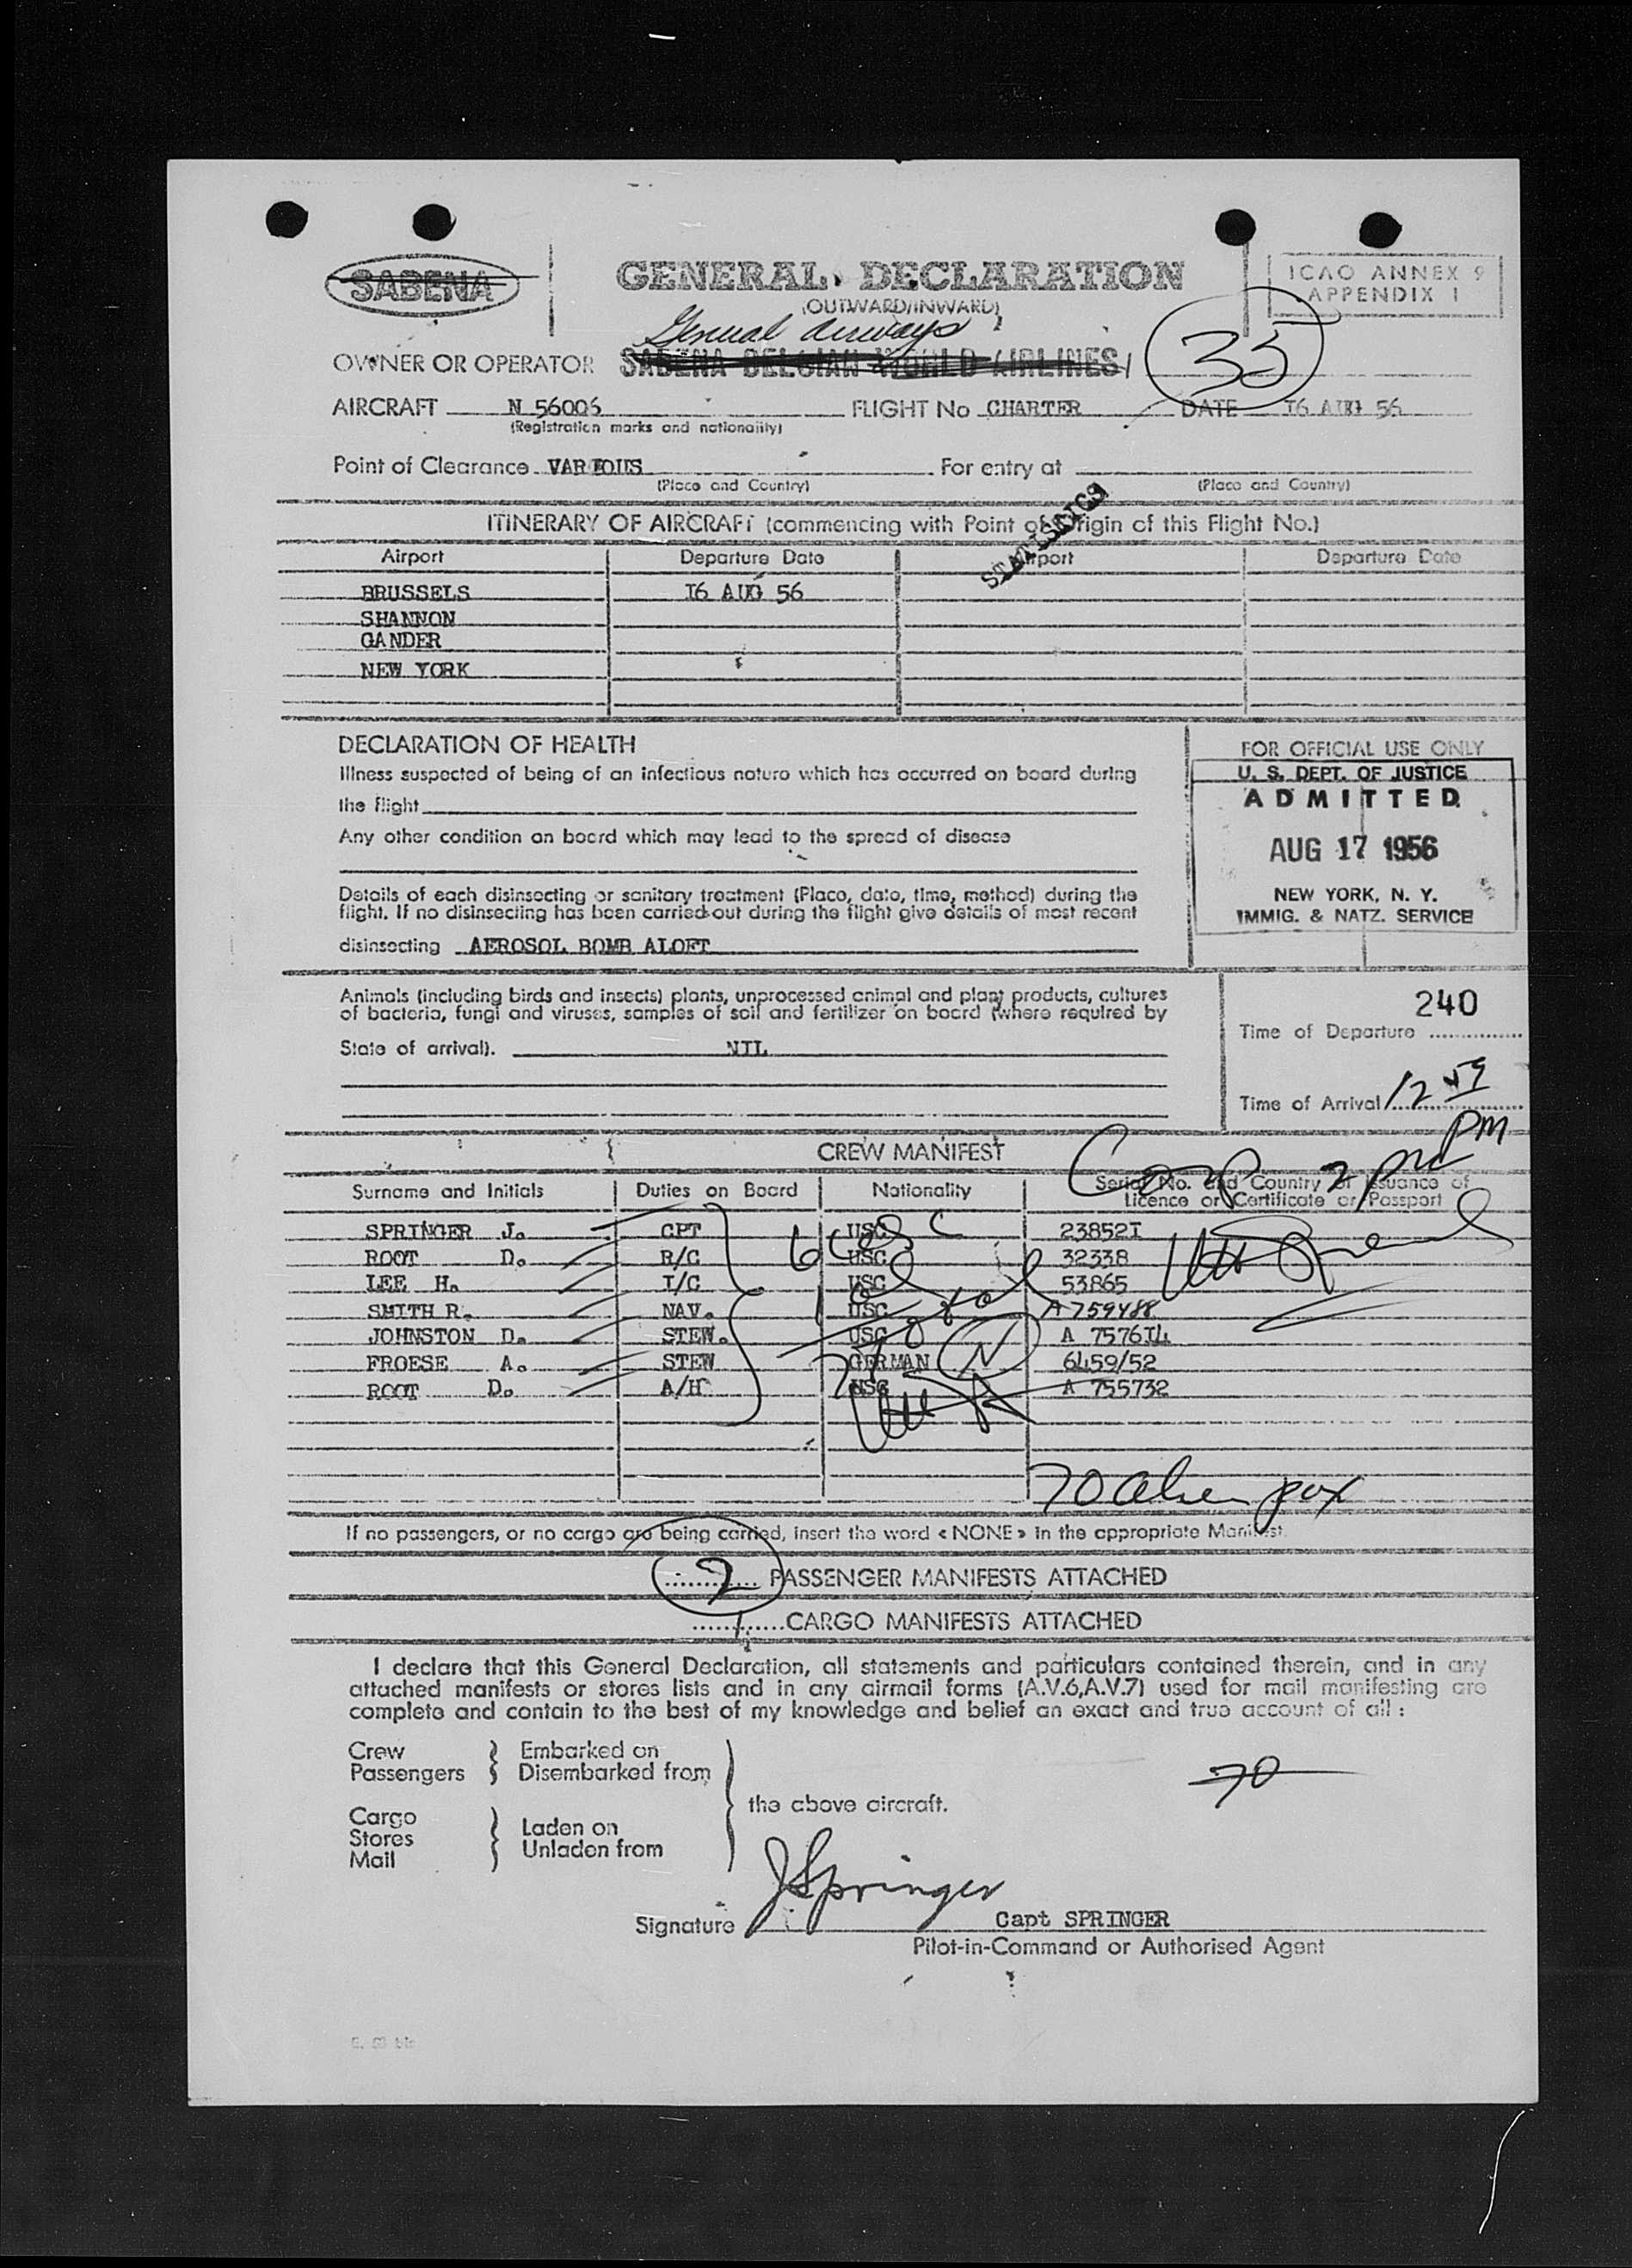 SABENA
GENERAL DECLARATION
(OUTWARD/INWARD)
ICAO ANNEX 9
APPENDIX I
General Airways
OWNER OR OPERATOR SABENA BELGIAN WORLD AIRLINES
35
AIRCRAFT N 56006 FLIGHT No CHARTER DATE I6 AUG 56
(Registration marks and nationality)
Point of Clearance VARIOUS For entry at
(Place and Country) (Place and Country)
STATISTICS
ITINERARY OF AIRCRAFT (commencing with Point of Origin of this Flight No.)
Airport Departure Date Airport Departure Date
BRUSSELS I6 AUG 56
SHANNON
GANDER
NEW YORK
DECLARATION OF HEALTH
Illness suspected of being of an infectious nature which has occurred on board during
the flight
Any other condition on board which may lead to the spread of disease
Details of each disinsecting or sanitary treatment (Place, date, time, method) during the
flight. If no disinsecting has been carried out during the flight give details of most recent
disinsecting AEROSOL BOMB ALOFT
FOR OFFICIAL USE ONLY
U. S. DEPT. OF JUSTICE
ADMITTED
AUG 17 1956
NEW YORK, N. Y.
IMMIG. & NATZ. SERVICE
Animals (including birds and insects) plants, unprocessed animal and plant products, cultures
of bacteria, fungi and viruses, samples of soil and fertilizer on board (where required by
State of arrival). NIL
240
Time of Departure
Time of Arrival 12
PM
CREW MANIFEST
Comp 2 PM
Surname and Initials Duties on Board Nationality Serial No. and Country of Issuance of
Licence or Certificate or Passport
SPRINGER J. CPT USC 23852I
ROOT D. R/C USC 32338
LEE H. I/C USC 53865
SMITH R. NAV. USC A 759488
JOHNSTON D. STEW. USC A 7576I4
FROESE A. STEW GERMAN N 6459/52
ROOT D. A/H USC A 755732
6 USC
70 alien pax
If no passengers, or no cargo are being carried, insert the word « NONE » in the appropriate Manifest.
2 PASSENGER MANIFESTS ATTACHED
1 CARGO MANIFESTS ATTACHED
I declare that this General Declaration, all statements and particulars contained therein, and in any
attached manifests or stores lists and in any airmail forms (A.V.6,A.V.7) used for mail manifesting are
complete and contain to the best of my knowledge and belief an exact and true account of all :
Crew Embarked on
Passengers Disembarked from
the above aircraft.
Cargo
Stores
Mail
Laden on
Unladen from
70
J Springer
Signature Capt SPRINGER
Pilot-in-Command or Authorised Agent